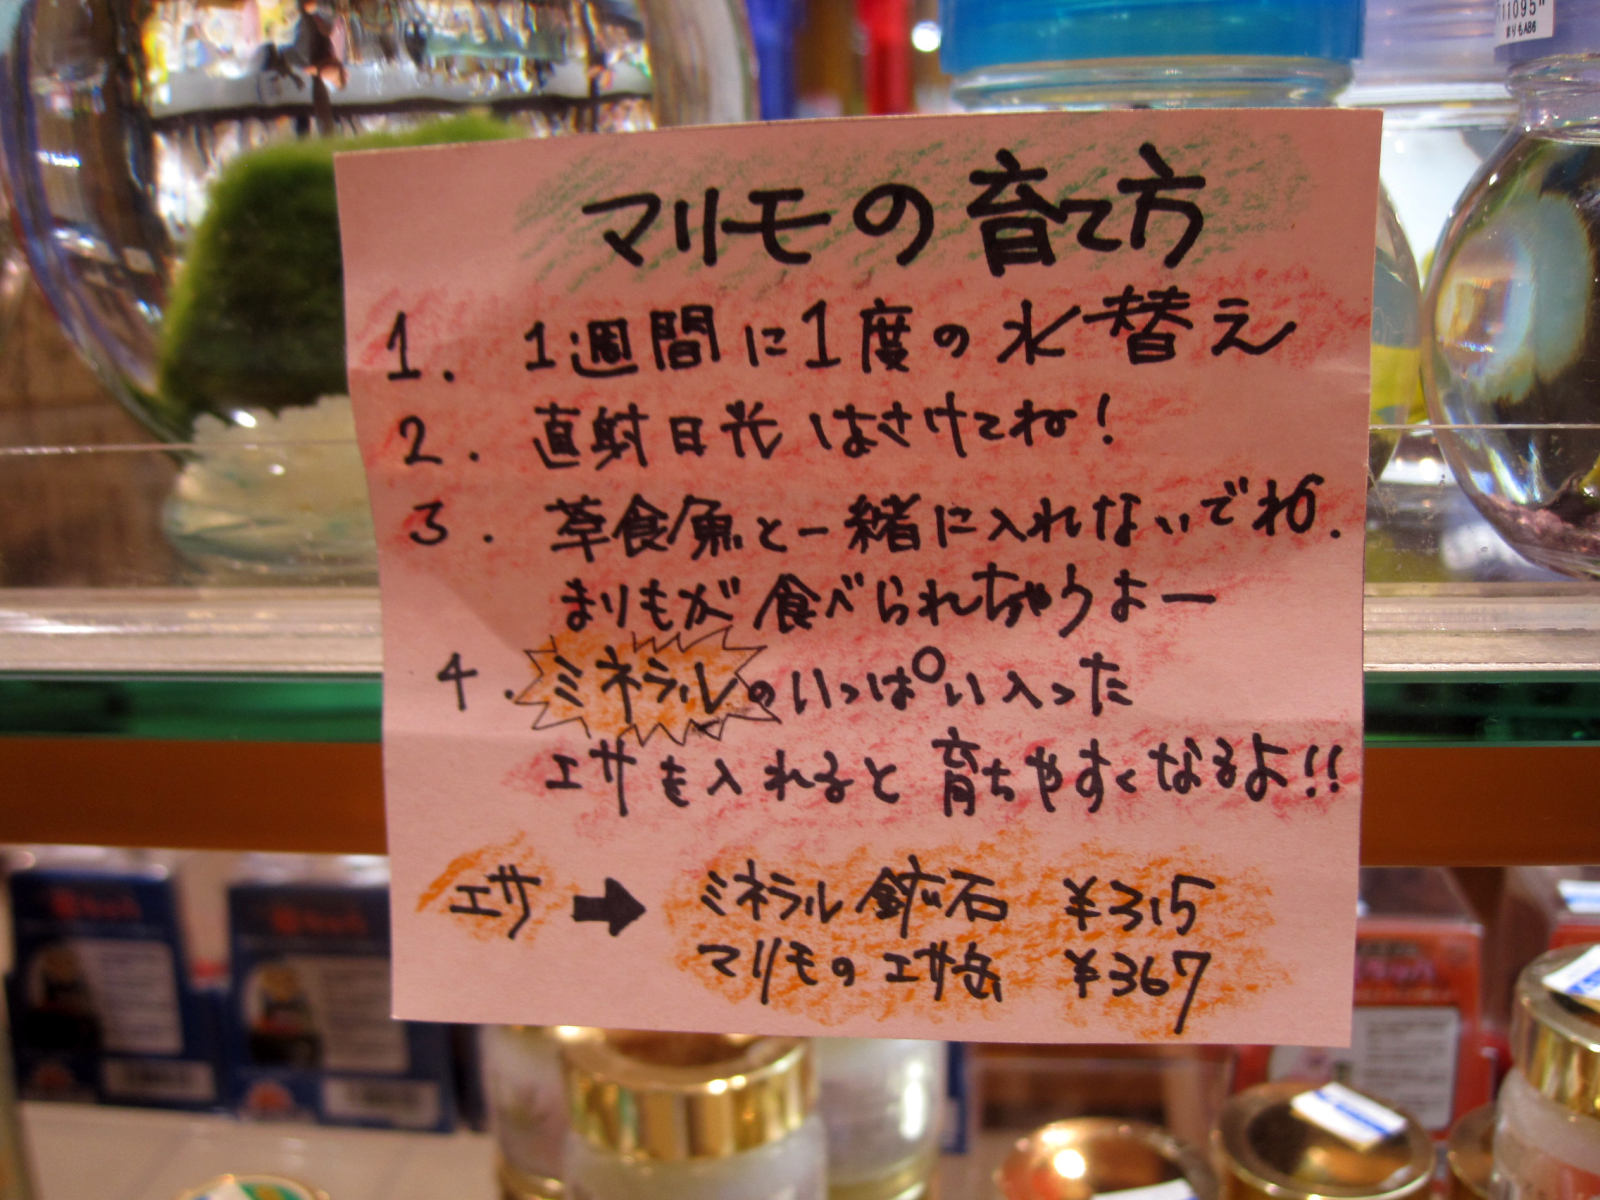 11095
まりもA86
マリモの育て方
1. 1週間に1度の水替え
2. 直射日光はさけてね!
3. 草食魚と一緒に入れないでね.
まりもが食べられちゃうよー
4. ミネラルのいっぱい入った
エサを入れると育ちやすくなるよ!!
エサ→ミネラル鉱石 ¥315
マリモのエサ缶 ¥367